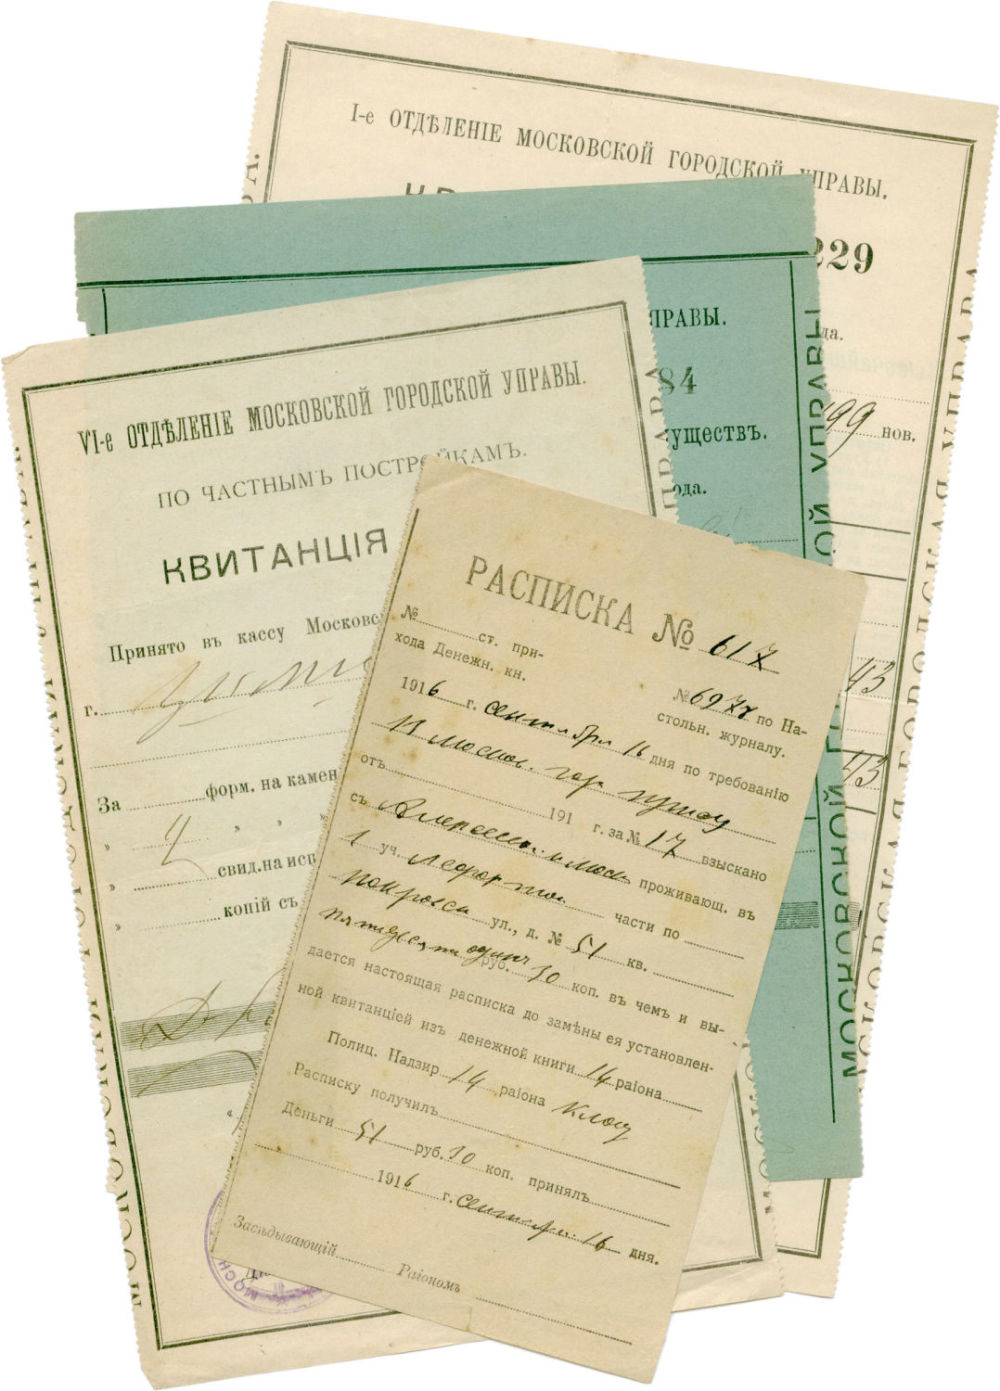 I-е ОТДѢЛЕНІЕ МОСКОВСКОЙ ГОРОДСКОЙ УПРАВЫ.
229
да.
99 нов.
43
43
МОСКОВСКАЯ ГОРОДСКАЯ УПРАВА
ПРАВЫ.
84
уществъ.
ода.
МОСКОВСКОЙ ГОРОДСКОЙ УПРАВЫ
VI-е ОТДѢЛЕНІЕ МОСКОВСКОЙ ГОРОДСКОЙ УПРАВЫ.
ПО ЧАСТНЫМЪ ПОСТРОЙКАМЪ.
КВИТАНЦІЯ
Принято въ кассу Московс
г.
За форм. на камен
" 4 " "
" свид. на исп
" копій съ
МОСКОВСКАЯ ГОРОДСКАЯ УПРАВА
РАСПИСКА № 617
№ ст. при-
хода Денежн. кн.
№ 6977 по На-
стольн. журналу.
1916 г. сентября 16 дня по требованію
Москов. гор.
отъ 191 г. за № 17 взыскано
съ проживающ. въ
1 уч. Лефортов части по
Покровск ул., д. № 51 кв.
пятьдесят один руб. 30 коп. въ чемъ и вы-
дается настоящая расписка до замѣны ея установлен-
ной квитанціей изъ денежной книги 14 раіона
Полиц. Надзир 14 раіона
Расписку получилъ
Деньги 51 руб. 30 коп. принялъ
" 1916 г. сентября 16 дня.
Завѣдывающій Раіономъ